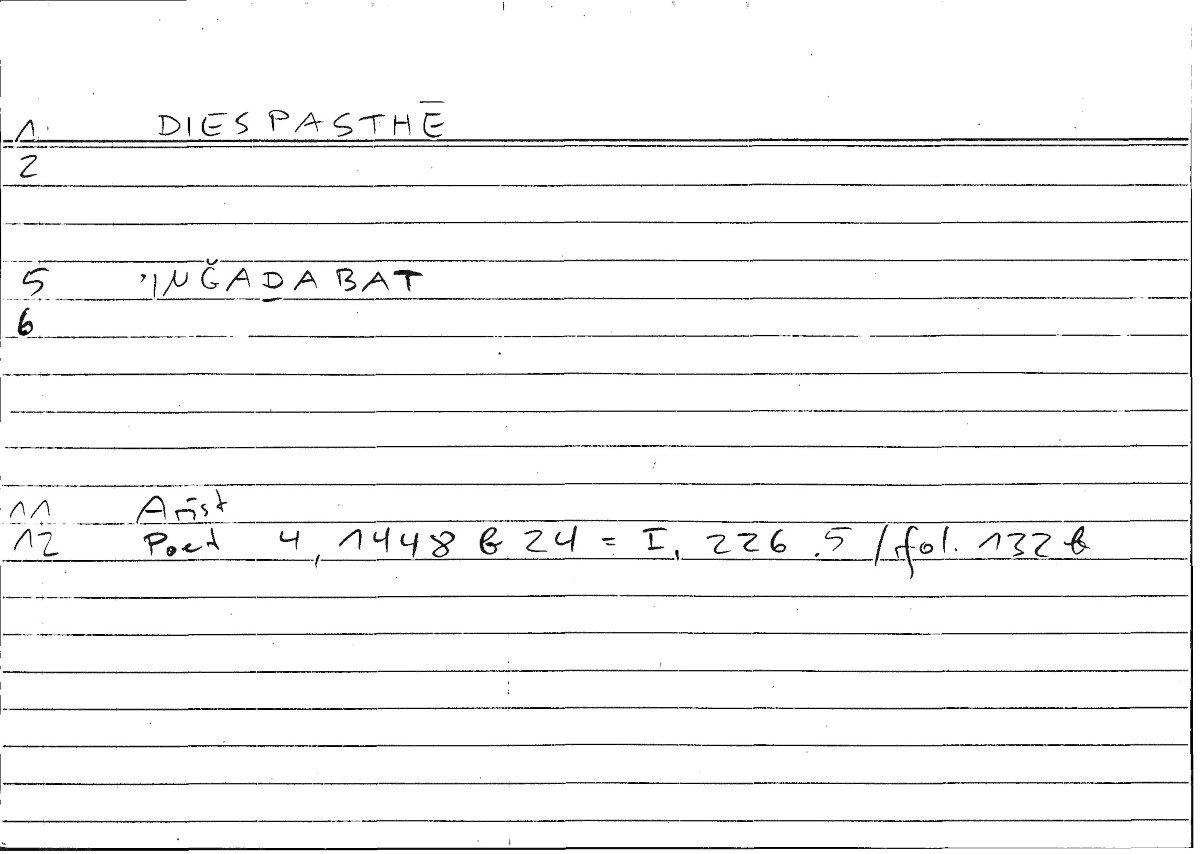 1. DIESPASTHĒ
2
5 'INǦAḎABAT
6
11 Arist
12 Poet 4, 1448 b 24 = I, 226.5 / fol. 132 b